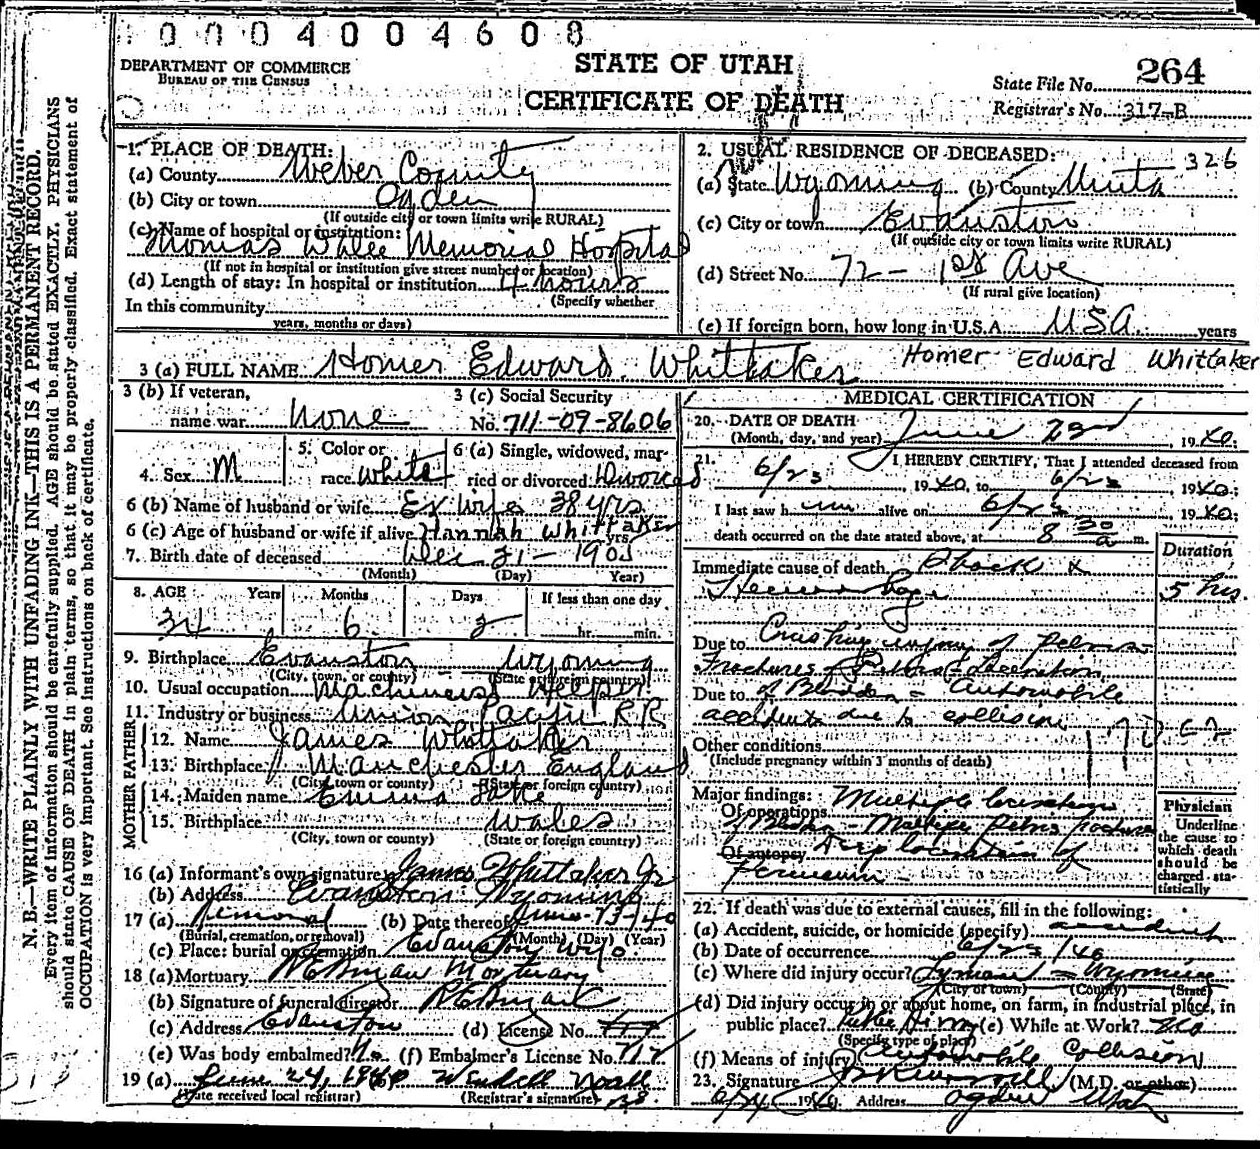 0004004608
DEPARTMENT OF COMMERCE
BUREAU OF THE CENSUS
STATE OF UTAH
CERTIFICATE OF DEATH
State File No. 264
Registrar's No. 317-B
N. B.—WRITE PLAINLY WITH UNFADING INK—THIS IS A PERMANENT RECORD.
Every item of information should be carefully supplied. AGE should be stated EXACTLY. PHYSICIANS
should state CAUSE OF DEATH in plain terms, so that it may be properly classified. Exact statement of
OCCUPATION is very important. See instructions on back of certificate.
1. PLACE OF DEATH:
(a) County Weber County
(b) City or town Ogden
(If outside city or town limits write RURAL)
(c) Name of hospital or institution:
Thomas Dee Memorial Hospital
(If not in hospital or institution give street number or location)
(d) Length of stay: In hospital or institution 4 hours
(Specify whether
In this community
years, months or days)
2. USUAL RESIDENCE OF DECEASED: 326
(a) State Wyoming (b) County Uinta
(c) City or town Evanston
(If outside city or town limits write RURAL)
(d) Street No. 72 - 1st Ave
(If rural give location)
(e) If foreign born, how long in U.S.A. USA years
3 (a) FULL NAME Homer Edward Whittaker Homer Edward Whittaker
3 (b) If veteran,
name war none
3 (c) Social Security
No. 711-09-8606
4. Sex M
5. Color or
race white
6 (a) Single, widowed, mar-
ried or divorced Divorced
6 (b) Name of husband or wife Ex wife 38 yrs
6 (c) Age of husband or wife if alive Hannah Whittaker yrs.
7. Birth date of deceased Dec 21 - 1905
(Month) (Day) Year)
8. AGE Years Months Days If less than one day
34 6 2 hr. min.
9. Birthplace Evanston Wyoming
(City, town, or county) (State or foreign country)
10. Usual occupation Machinist Helper
11. Industry or business Union Pacific R.R
FATHER
12. Name James Whittaker
13. Birthplace Manchester England
(City, town or county) (State or foreign country)
MOTHER
14. Maiden name Emma
15. Birthplace Wales
(City, town or county) (State or foreign country)
16 (a) Informant's own signature James Whittaker Jr
(b) Address Evanston Wyoming
17 (a) Removal (b) Date thereof
(Burial, cremation, or removal) (Month) (Day) (Year)
(c) Place: burial or cremation Evanston Wyo.
18 (a) Mortuary Mortuary
(b) Signature of funeral director
(c) Address Evanston (d) License No.
(e) Was body embalmed? (f) Embalmer's License No.
19 (a) June 24, 1940 Wendell Noall
(Date received local registrar) (Registrar's signature)
MEDICAL CERTIFICATION
20. DATE OF DEATH
(Month, day, and year) June 23rd, 1940.
21. I HEREBY CERTIFY, That I attended deceased from
6/23, 1940, to 6/23, 1940;
I last saw him alive on 6/23, 1940;
death occurred on the date stated above, at 8 30 a m.
Duration
Immediate cause of death Shock &
Hemorrhage 5 hrs.
Due to Crushing injury of pelvis
Fractures of Pelvis laceration
Due to of Bladder - automobile
accident due to collision
Other conditions
(Include pregnancy within 3 months of death)
Major findings: Multiple laceration
Of operations of Bladder - Multiple pelvis fracture
Of autopsy Deep laceration of
Perineum -
Physician
Underline
the cause to
which death
should be
charged sta-
tistically
22. If death was due to external causes, fill in the following:
(a) Accident, suicide, or homicide (specify) accident
(b) Date of occurrence 6/23/40
(c) Where did injury occur? Lyman - Wyoming
(City or town) (County) (State)
(d) Did injury occur in or about home, on farm, in industrial place, in
public place? (e) While at Work? no
(Specify type of place)
(f) Means of injury Automobile Collision
23. Signature (M.D. or other)
1940 Address Ogden Utah